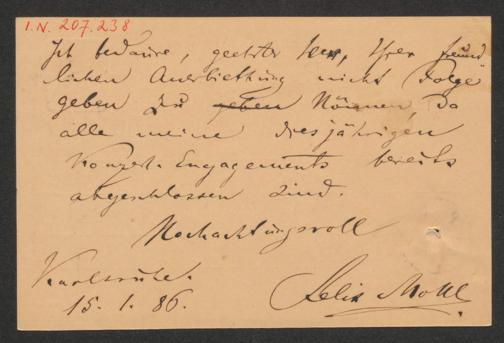 I.N. 207.238
Ich bedaure, geehrter Herr, Ihrer freund
lichen Anerbiethung nicht Folge
geben zu geben können, da
alle meine diesjährigen
Konzert-Engagements bereits
abgeschlossen sind.
Hochachtungsvoll
Karlsruhe.
15. 1. 86.
Felix Mottl